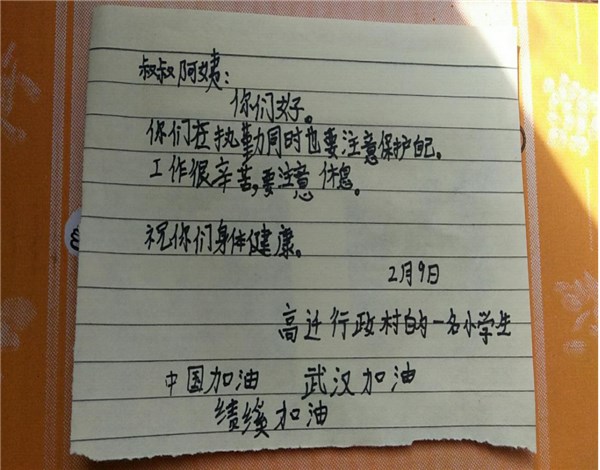 叔叔阿姨：
你们好。
你们在执勤同时也要注意保护自己。
工作很辛苦，要注意休息。
祝你们身体健康。
2月9日
高迁行政村的一名小学生
中国加油 武汉加油
绩溪加油